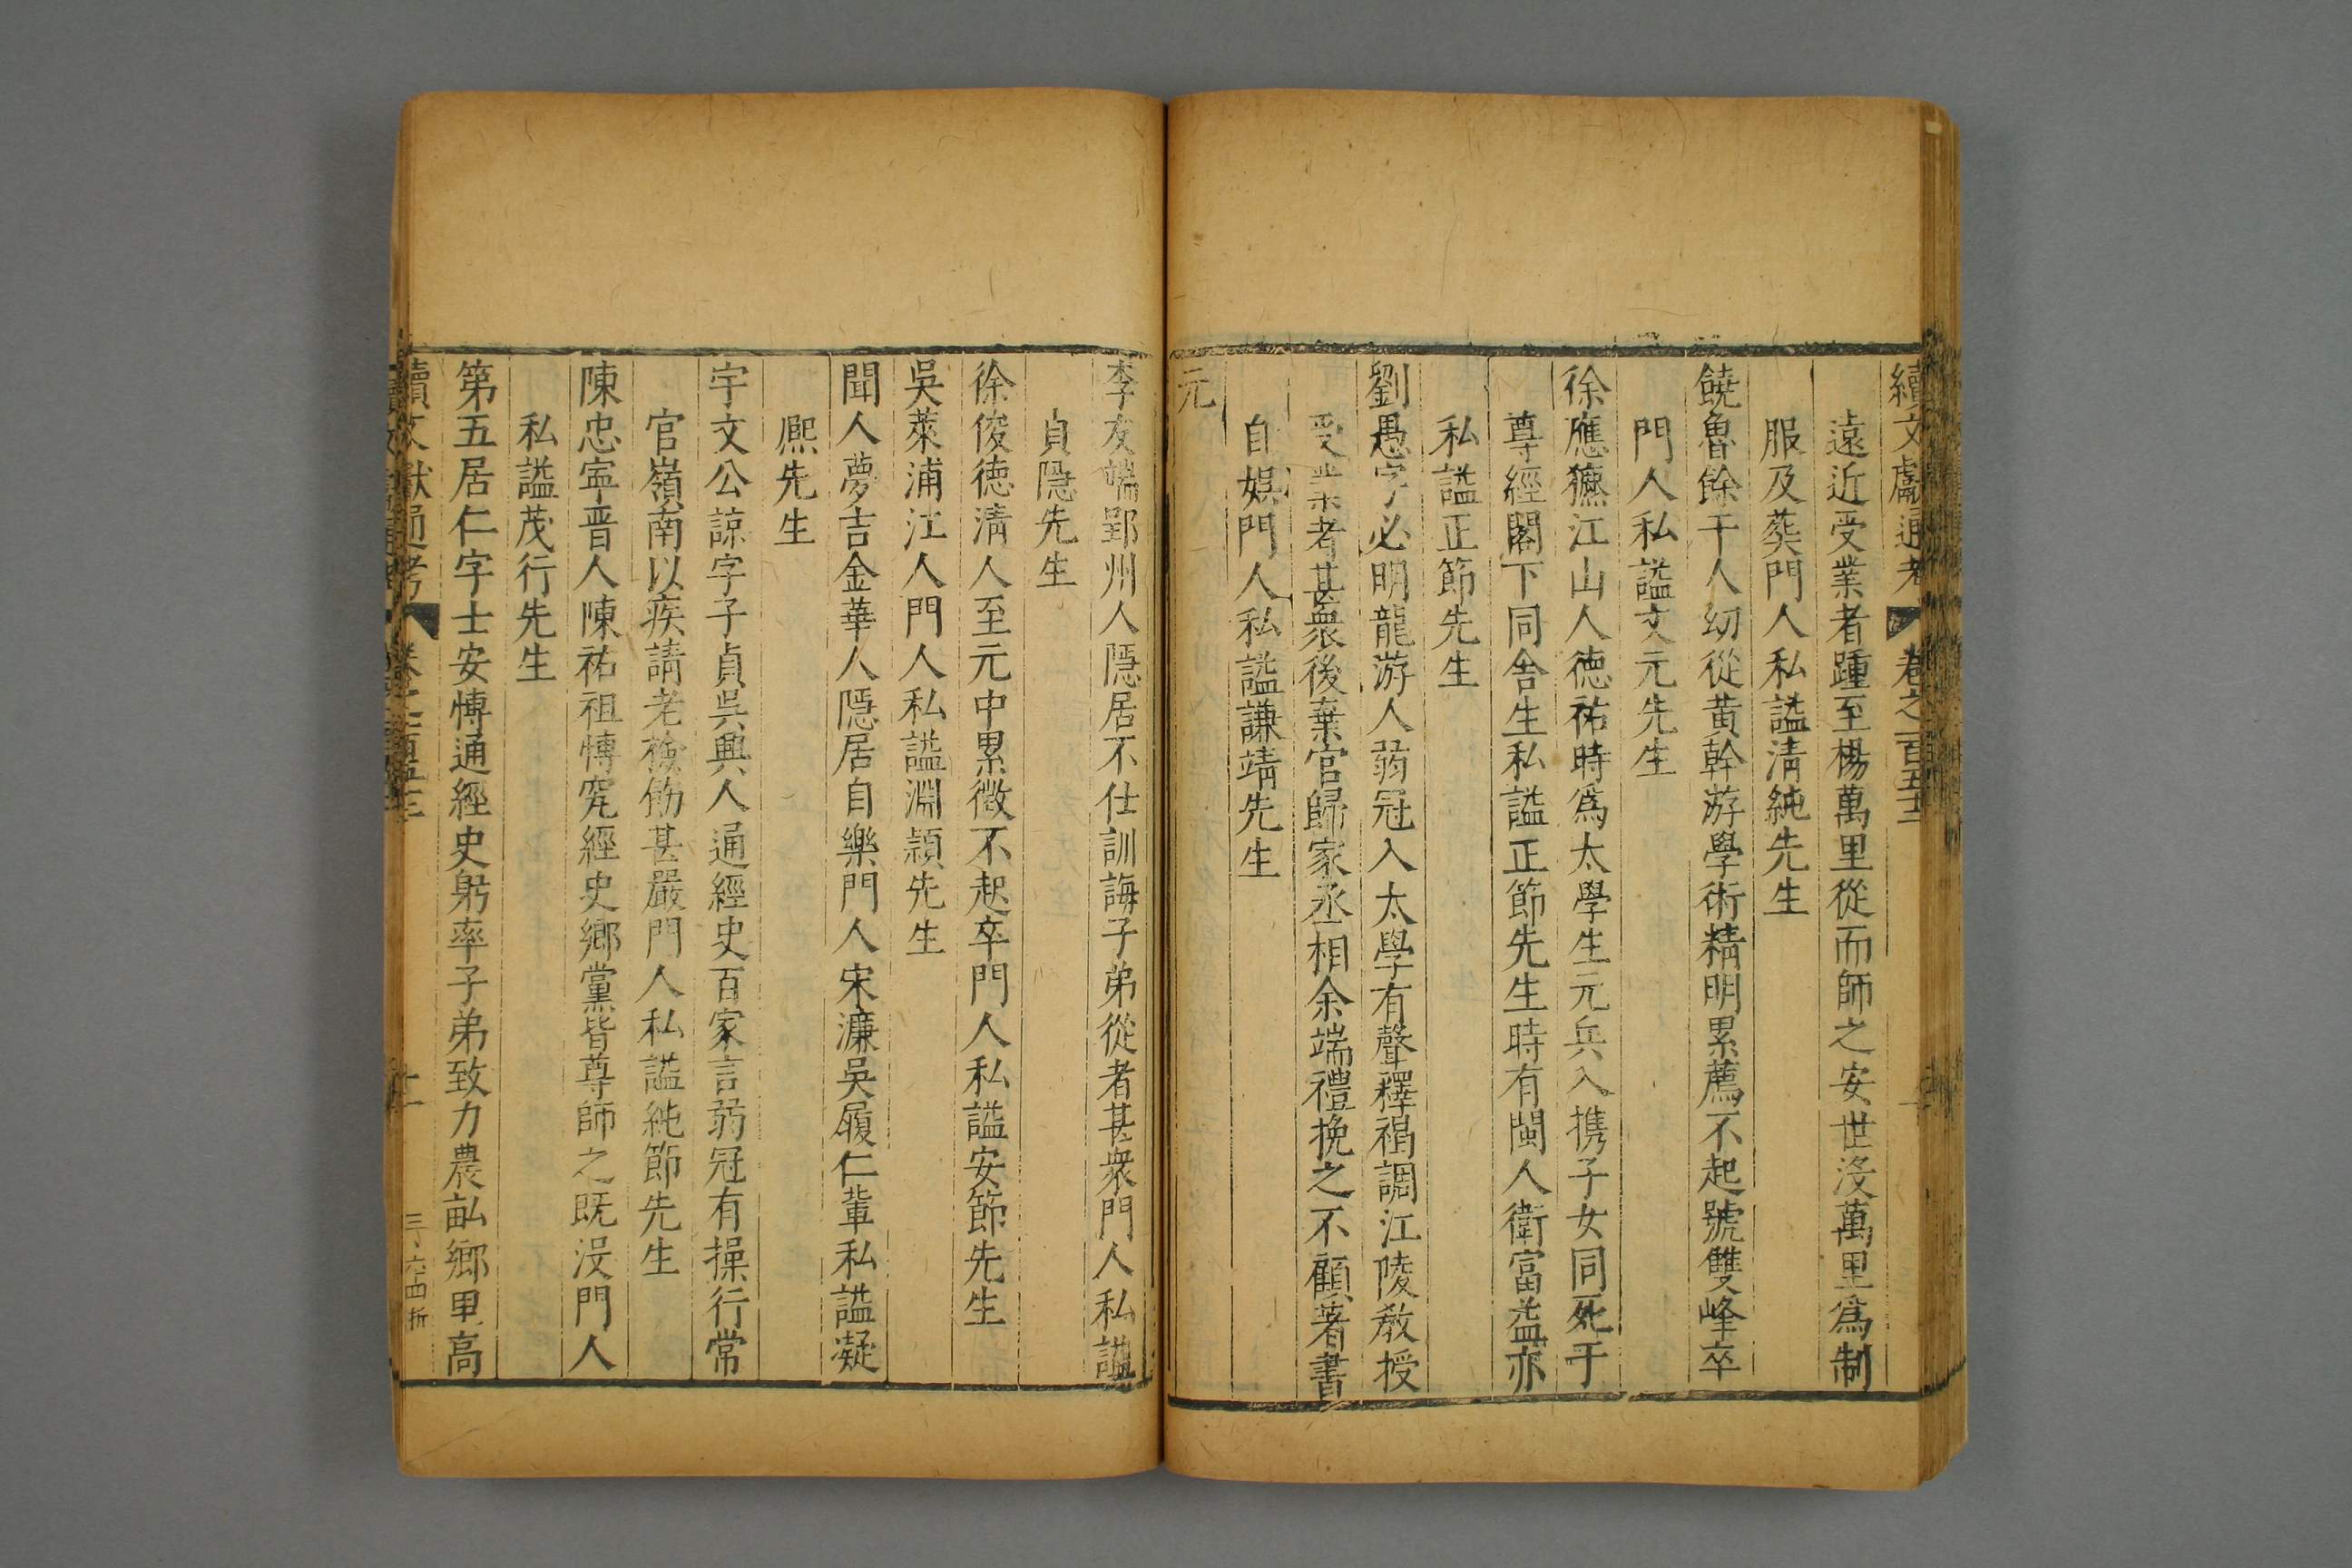 續文獻通考 卷之一百五十三
遠近受業者踵至楊萬里從而師之安世沒萬里爲制
服及葬門人私謚清純先生
饒魯餘干人幼從黄幹游學術精明累薦不起號雙峰卒
門人私謚文元先生
徐應鑣江山人德祐時爲太學生元兵入携子女同死于
尊經閣下同舍生私謚正節先生時有閩人衛富益亦
私謚正節先生
劉愚字必明龍游人弱冠入太學有聲釋褐調江陵教授
受業者甚衆後棄官歸家丞相余端禮挽之不顧著書
自娯門人私謚謙靖先生
元
李友端鄞州人隱居不仕訓誨子弟從者甚衆門人私謚
貞隱先生
徐俊德清人至元中累徵不起卒門人私謚安節先生
吳萊浦江人門人私謚淵穎先生
聞人夢吉金華人隱居自樂門人宋濂吳履仁輩私謚凝
熈先生
宇文公諒字子貞吳興人通經史百家言弱冠有操行常
官嶺南以疾請老檢飭甚嚴門人私謚純節先生
陳忠寧晋人陳祐祖愽究經史鄉黨皆尊師之既没門人
私謚茂行先生
第五居仁字士安愽通經史躬率子弟致力農畝鄉里高
續文獻通考 卷之一百五十三 十一 三、六四折